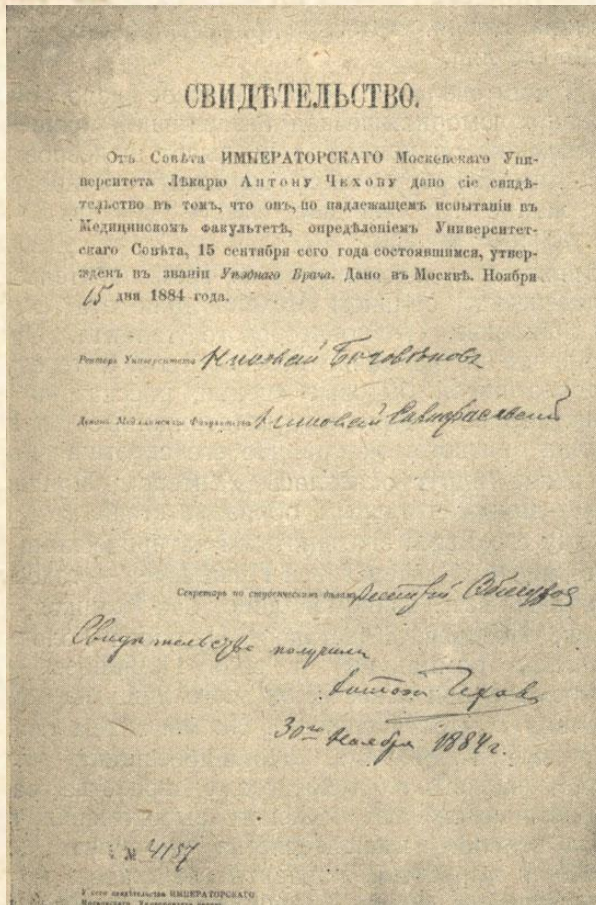 СВИДѢТЕЛЬСТВО.
Отъ Совѣта ИМПЕРАТОРСКАГО Московскаго Уни-
верситета Лѣкарю Антону Чехову дано сіе свидѣ-
тельство въ томъ, что онъ, по надлежащемъ испытаніи въ
Медицинскомъ факультетѣ, опредѣленіемъ Университет-
скаго Совѣта, 15 сентября сего года состоявшимся, утвер-
жденъ въ званіи Уѣзднаго Врача. Дано въ Москвѣ. Ноября
15 дня 1884 года.
Ректоръ Университета Николай Боголѣповъ
Деканъ Медицинскаго Факультета Николай
Секретарь по студенческимъ дѣламъ
Свидѣтельство получилъ
Антонъ Чеховъ
30го Ноября 1884 г.
№ 4157
У сего свидѣтельства ИМПЕРАТОРСКАГО
Московскаго Университета печать